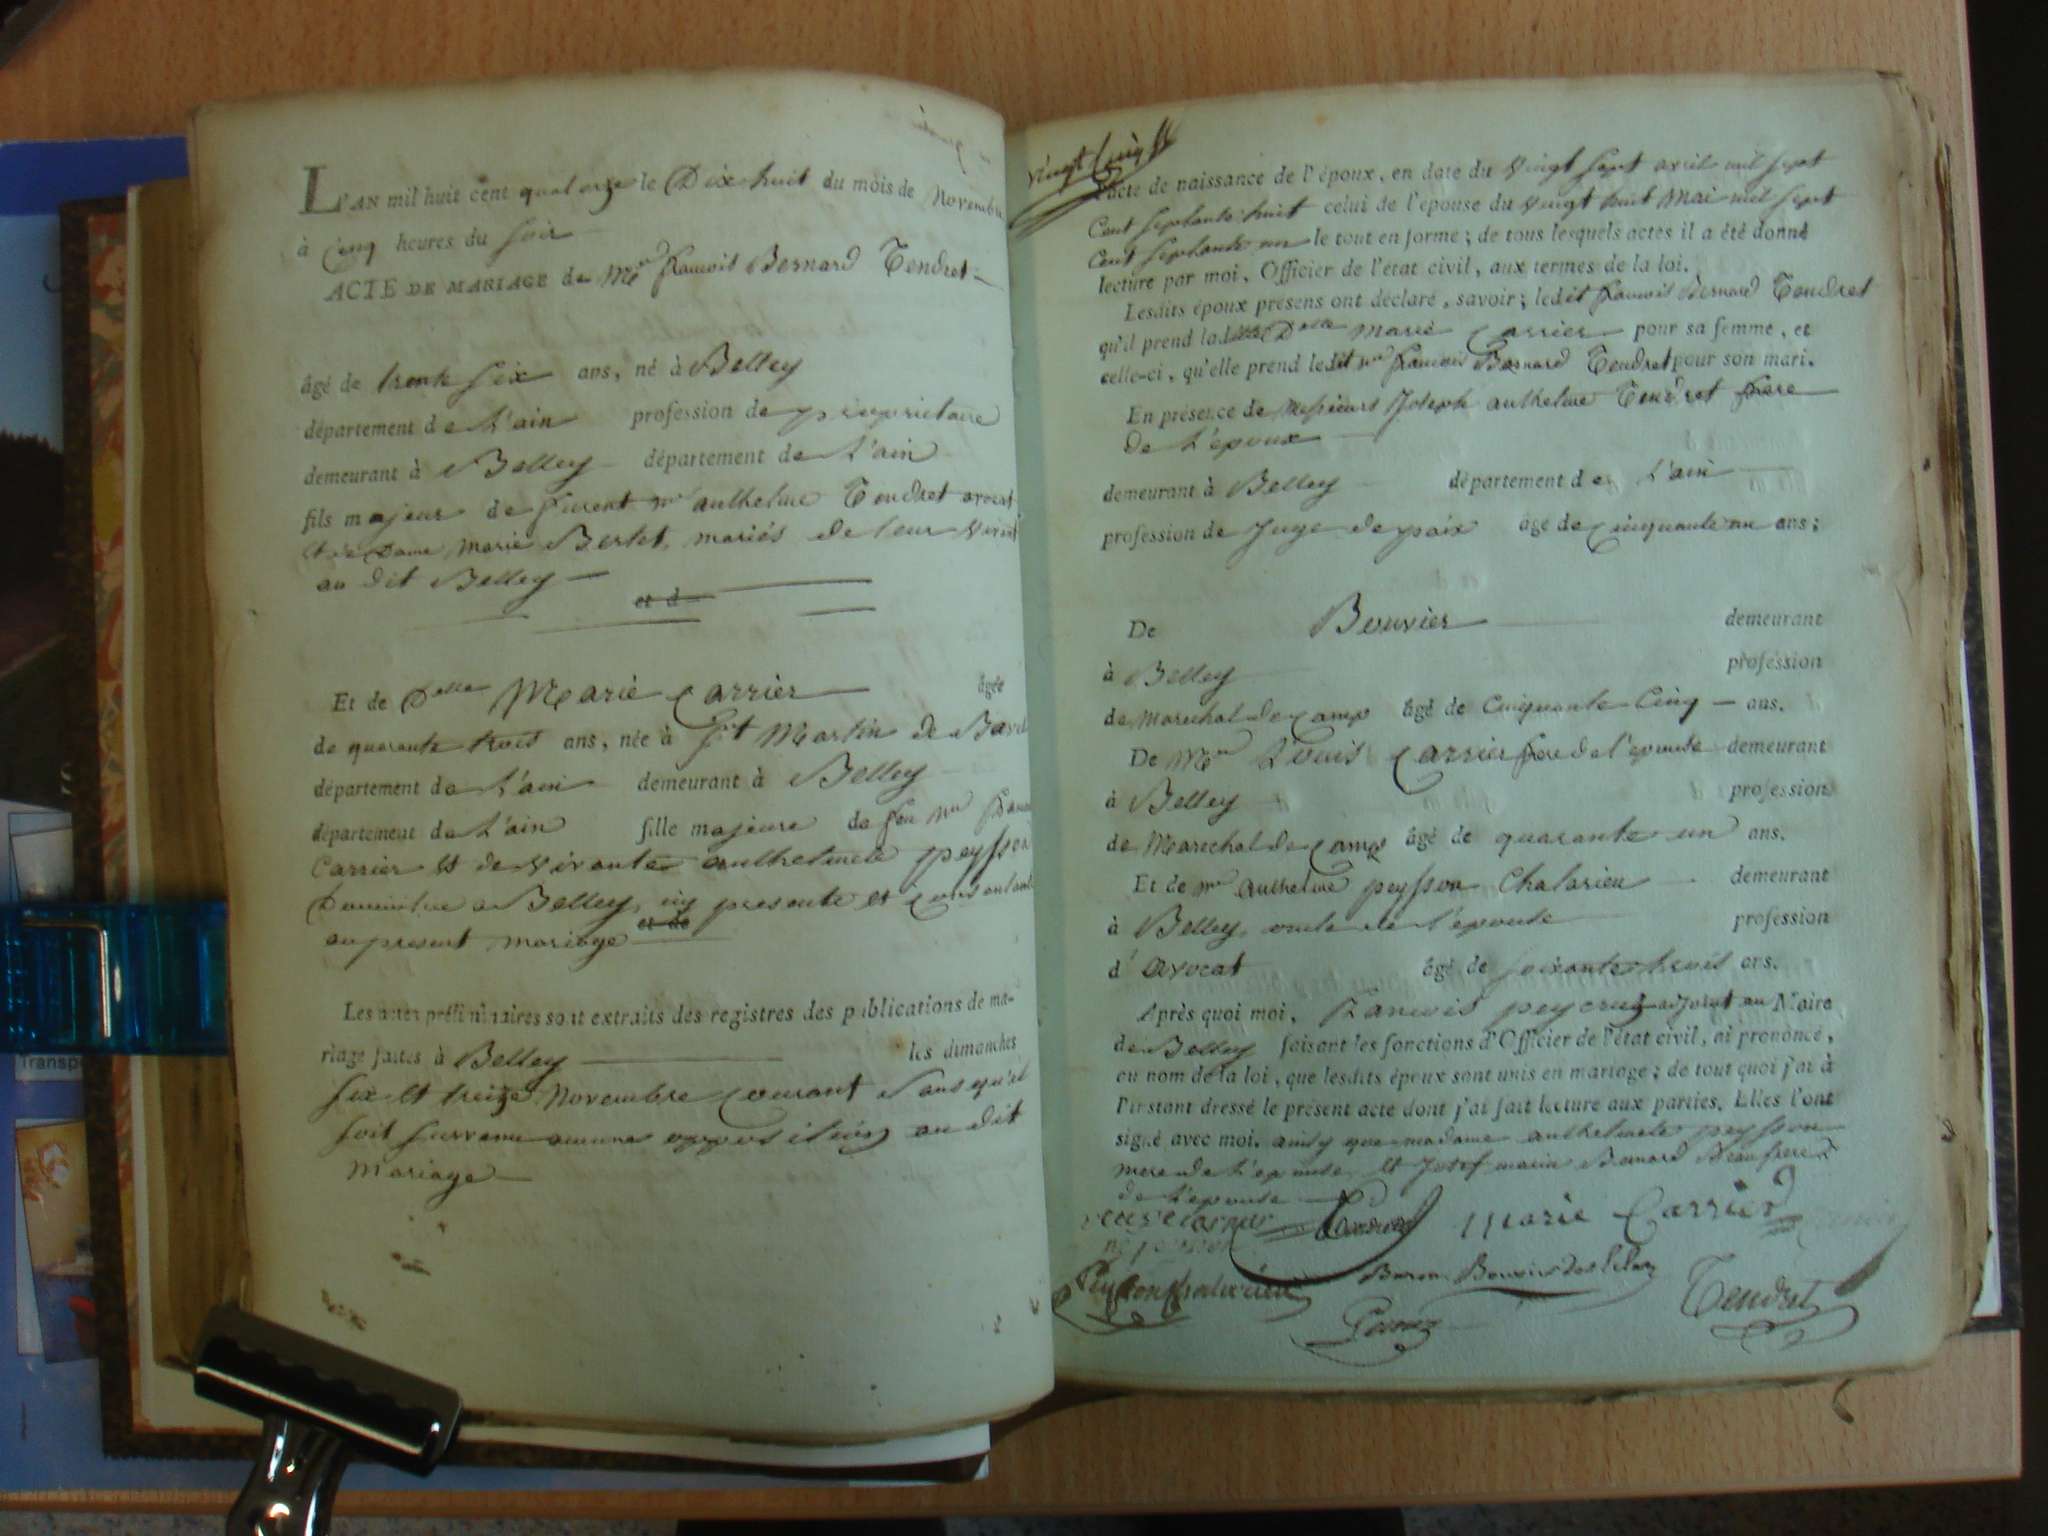 L'AN mil huit cent quatorze le Dix huit du mois de Novembre
à Cinq heures du Soir
ACTE DE MARIAGE de Mr francois Bernard Tendret
âgé de trente six ans, né à Belley
département de L'ain profession de proprietaire
demeurant à Belley département de L'ain
fils majeur de furent mr anthelme Tendret avocat
et de Dame Marie Bertet, mariés de leur vivant
au dit Belley
et d
Et de Delle Marie Carrier âgée
de quarante trois ans, née à St Martin de Bavel
département de L'ain demeurant à Belley
département de L'ain fille majeure de feu mr
Carrier et de vivante anthelmete peysson
Demeurre a Belley, icy presente et Consentante
au present mariage et de
Les actes préliminaires sont extraits des registres des publications de ma-
riage faites à Belley les dimanches
six et treize Novembre Courant sans qu'il
soit survenu aucune opposition au dit
mariage
vingt Cinq
L'acte de naissance de l'époux, en date du vingt sept avril mil sept
Cent septante huit celui de l'épouse du vingt huit Mai mil sept
Cent septante un le tout en forme; de tous lesquels actes il a été donné
lecture par moi, Officier de l'état civil, aux termes de la loi.
Lesdits époux présens ont déclaré, savoir; ledit francois Bernard Tendret
qu'il prend ladite Delle Marie Carrier pour sa femme, et
celle-ci, qu'elle prend ledit mr francois Bernard Tendret pour son mari.
En présence de Messieurs Joseph anthelme Tendret frere
de L'epoux
demeurant à Belley département de L'ain
profession de Juge de paix âgé de Cinquante un ans;
De Bouvier demeurant
à Belley profession
de Marechal de Camp âgé de Cinquante Cinq ans.
De Mr Louis Carrier frere de l'epouse demeurant
à Belley profession
de Marechal de Camp âgé de quarante un ans.
Et de mr anthelme peysson Chalarieu demeurant
à Belley, oncle de l'epouse profession
d'avocat âgé de soixante trois ans.
Après quoi moi, francois adjoint au Maire
de Belley faisant les fonctions d'Officier de l'état civil, ai prononcé,
au nom de la loi, que lesdits époux sont unis en mariage; de tout quoi j'ai à
l'instant dressé le présent acte dont j'ai fait lecture aux parties. Elles l'ont
signé avec moi, ainsy que madame anthelmete peysson
mere de L'epouse et Josef marin Bernard Beaufrere
de L'epouse
Marie Carrier
Peysson Chalarieu
Baron Bouvier
Tendret